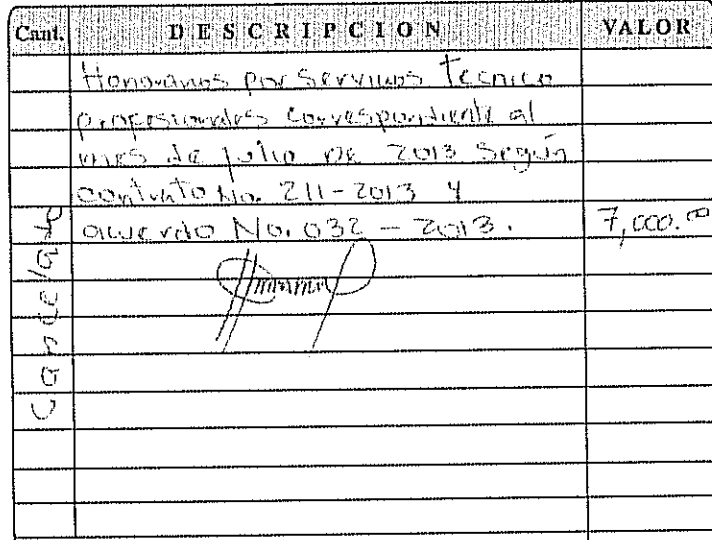 Cant. DESCRIPCION VALOR
Honorarios por Servicios Tecnico
profesionales correspondiente al
mes de julio de 2013 Según
contrato No. 211-2013 y
acuerdo No. 032 - 2013. 7,000.00
Cancelado